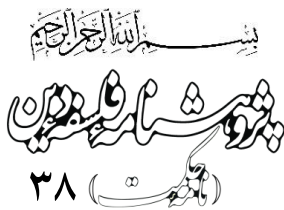 بسم الله الرحمن الرحیم
پژوهشنامه فلسفه دین
(نامه حکمت) ۳۸